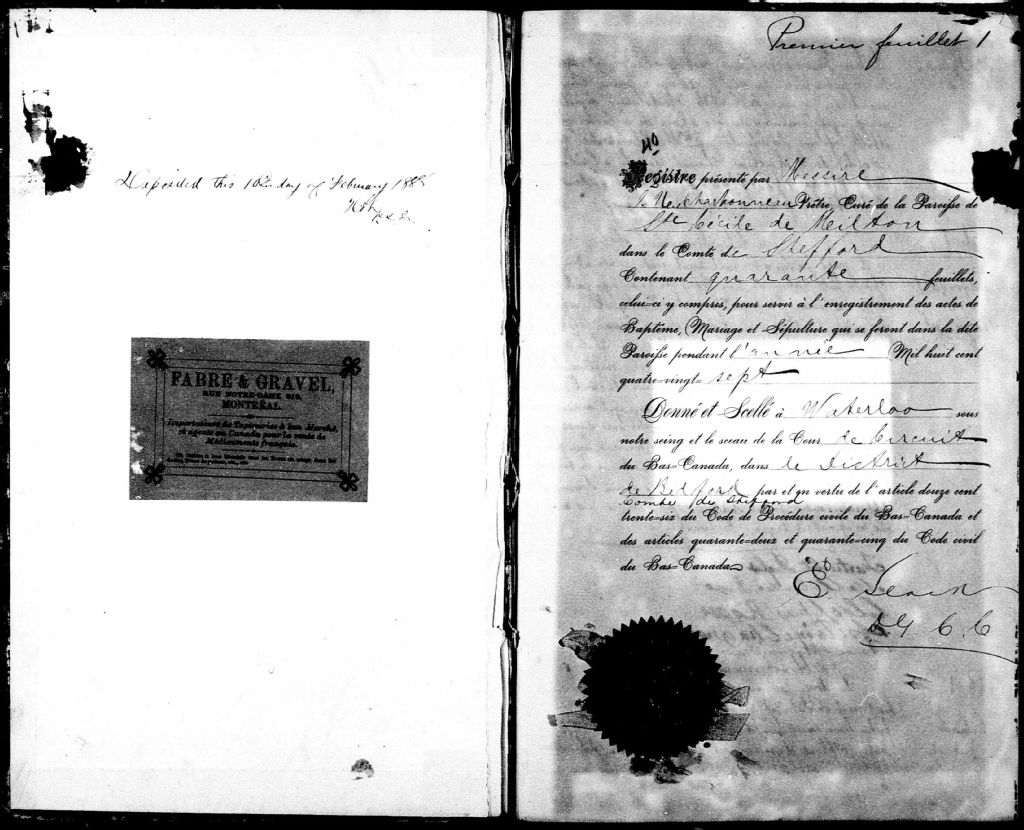 Deposited this 10th day of February 188
FABRE & GRAVEL,
RUE NOTRE-DAME 219,
MONTRÉAL.
Importateurs de Tapisseries à bon Marché
et agents en Canada pour la vente de
Médicaments français
Premier feuillet 1
40
Registre présenté par Messire
Charbonneau Prêtre, Curé de la Paroisse de
Ste Cécile de Milton
dans le Comté de Shefford
Contenant quarante feuillets,
celui-ci y compris, pour servir à l'enregistrement des actes de
Baptême, Mariage et Sépulture qui se feront dans la dite
Paroisse pendant l'année Mil huit cent
quatre-vingt-sept
Donné et Scellé à Waterloo sous
notre seing et le sceau de la Cour de Circuit
du Bas-Canada, dans le District
de Bedford par et en vertu de l'article douze cent
Comté de Shefford
trente-six du Code de Procédure civile du Bas-Canada et
des articles quarante-deux et quarante-cinq du Code civil
du Bas-Canada